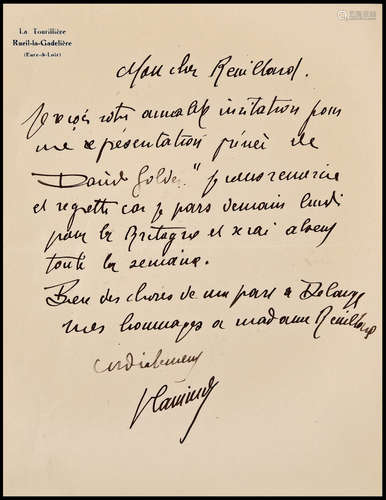 La Tourillière
Rueil-la-Gadelière
(Eure-&-Loir)
Mon cher Reuillard.
Je reçois votre aimable invitation pour
une représentation privée de
David Golder" je vous remercie
et regrette car je pars demain lundi
pour la Bretagne et serai absent
toute la semaine.
Bien des choses de ma part à Delange
mes hommages à madame Reuillard
cordialement
Vlaminck